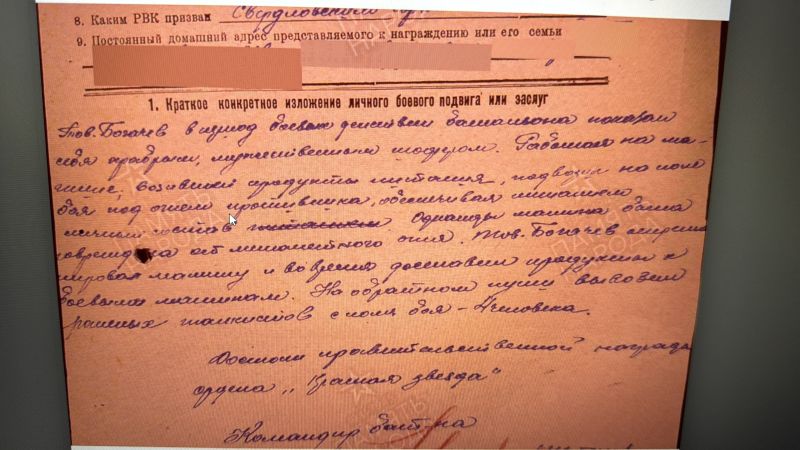 8. Каким РВК призван Свердловским
9. Постоянный домашний адрес представляемого к награждению или его семьи
1. Краткое конкретное изложение личного боевого подвига или заслуг
Тов. Богачев в период боевых действий батальона показал
себя храбрым, мужественным шофером. Работая на ма-
шине, возившей продукты питания, подвозил на поле
боя под огнем противника, обеспечивая питанием
личный состав питанием Однажды машина была
повреждена от минометного огня. Тов. Богачев
машину и во время доставил продукты к
боевым машинам. На обратном пути вывозил
раненых танкистов с поля боя - 4 человека.
Достоин правительственной награды
ордена „Красная звезда"
Командир бат-на
ПАМЯТЬ НАРОДА